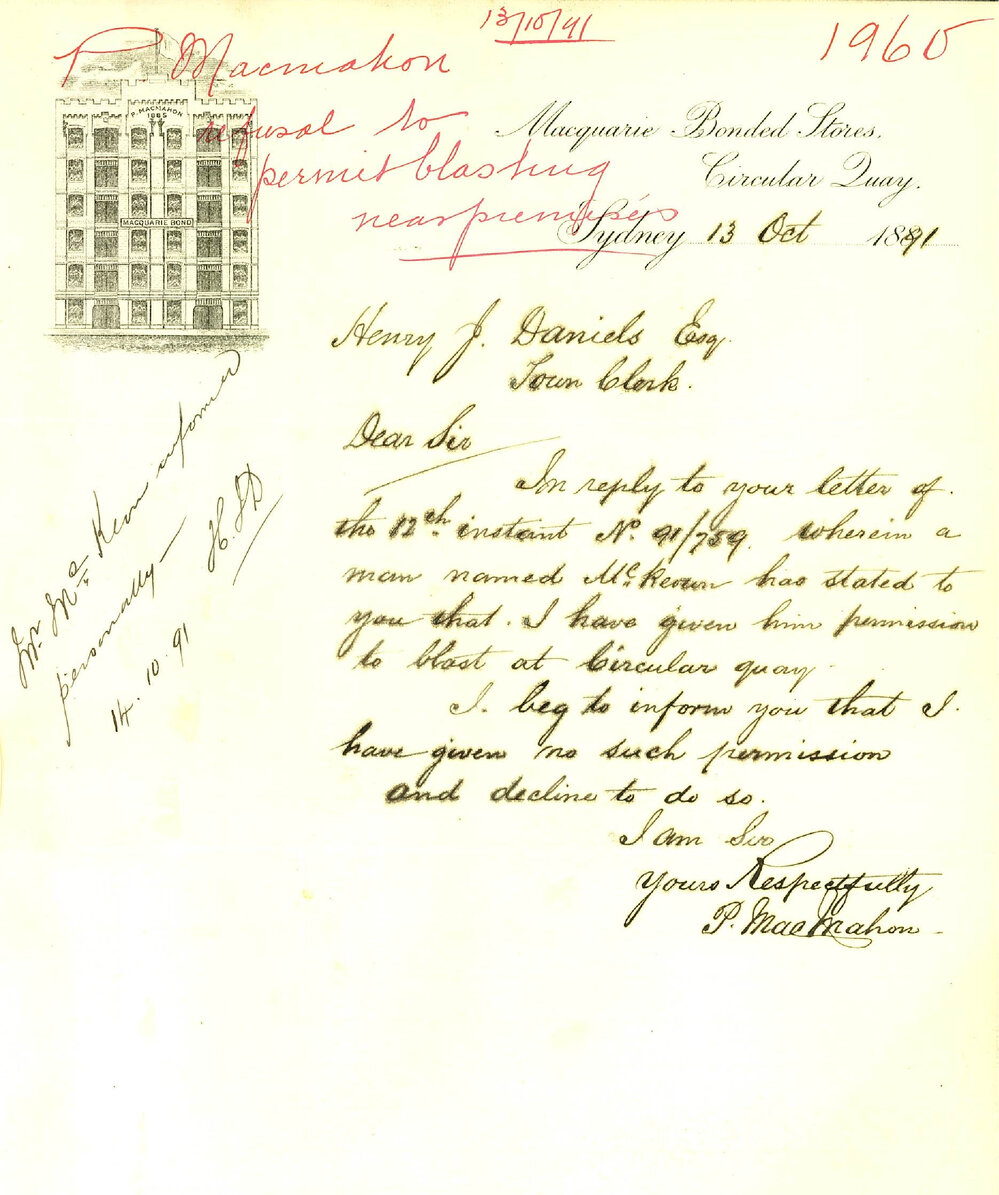 13/10/91
1960
P Macmahon
refusal to
permit blasting
near premises
P. MACMAHON
1885
MACQUARIE BOND
Macquarie Bonded Stores,
Circular Quay,
Sydney 13 Oct 1891
Henry J. Daniels Esq.
Town Clerk.
Dear Sir
In reply to your letter of
the 12th instant No. 91/759 wherein a
man named McKeown has stated to
you that I have given him permission
to blast at Circular quay
I beg to inform you that I
have given no such permission
and decline to do so.
I am Sir
Yours Respectfully
P. MacMahon
Mr McKeown informed
personally —
H.J.D
14.10.91